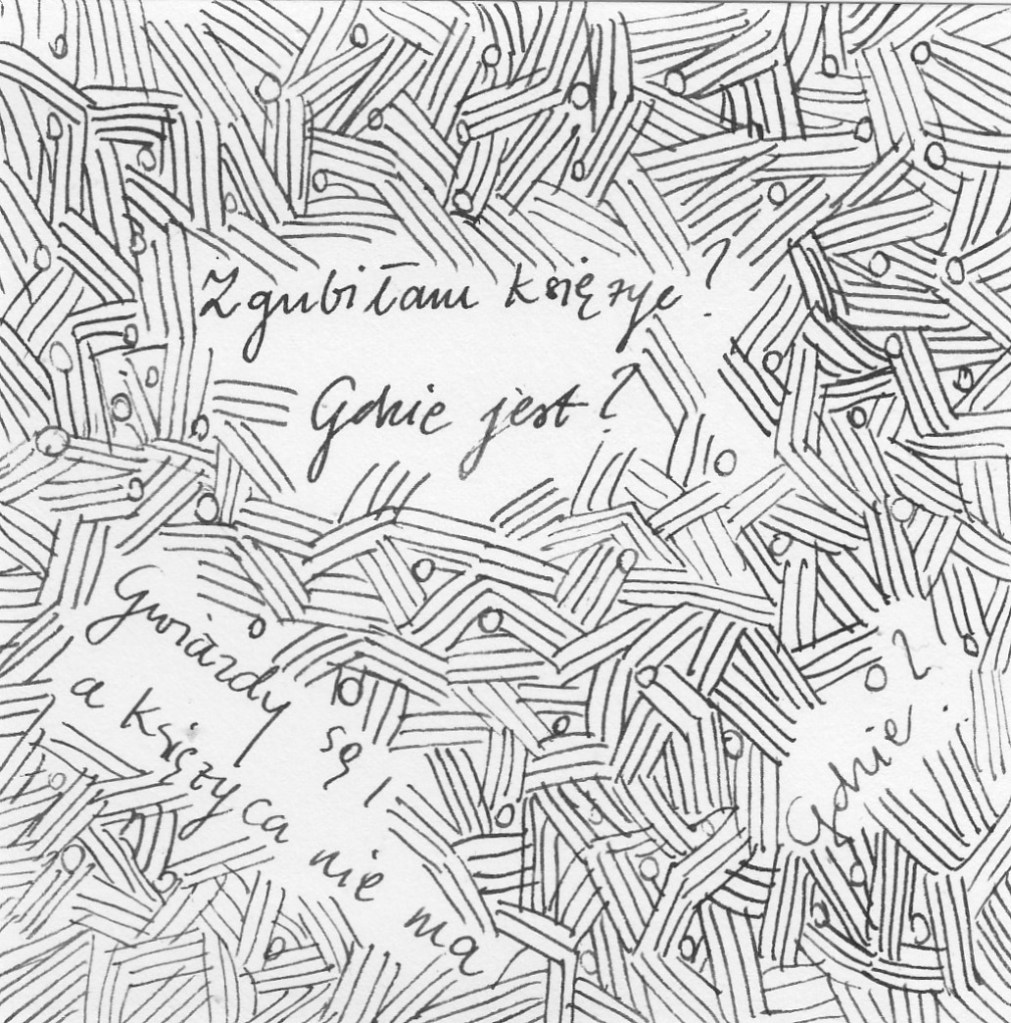 Zgubiłam księżyc?
Gdzie jest?
Gwiazdy są,
a księżyca nie ma
Gdzie?